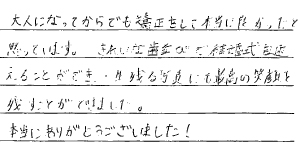 大人になってからでも矯正をして本当に良かったと
思っています。きれいな歯並びで結婚式を迎
えることができ、残る写真にも最高の笑顔を
残すことができました。
本当にありがとうございました!